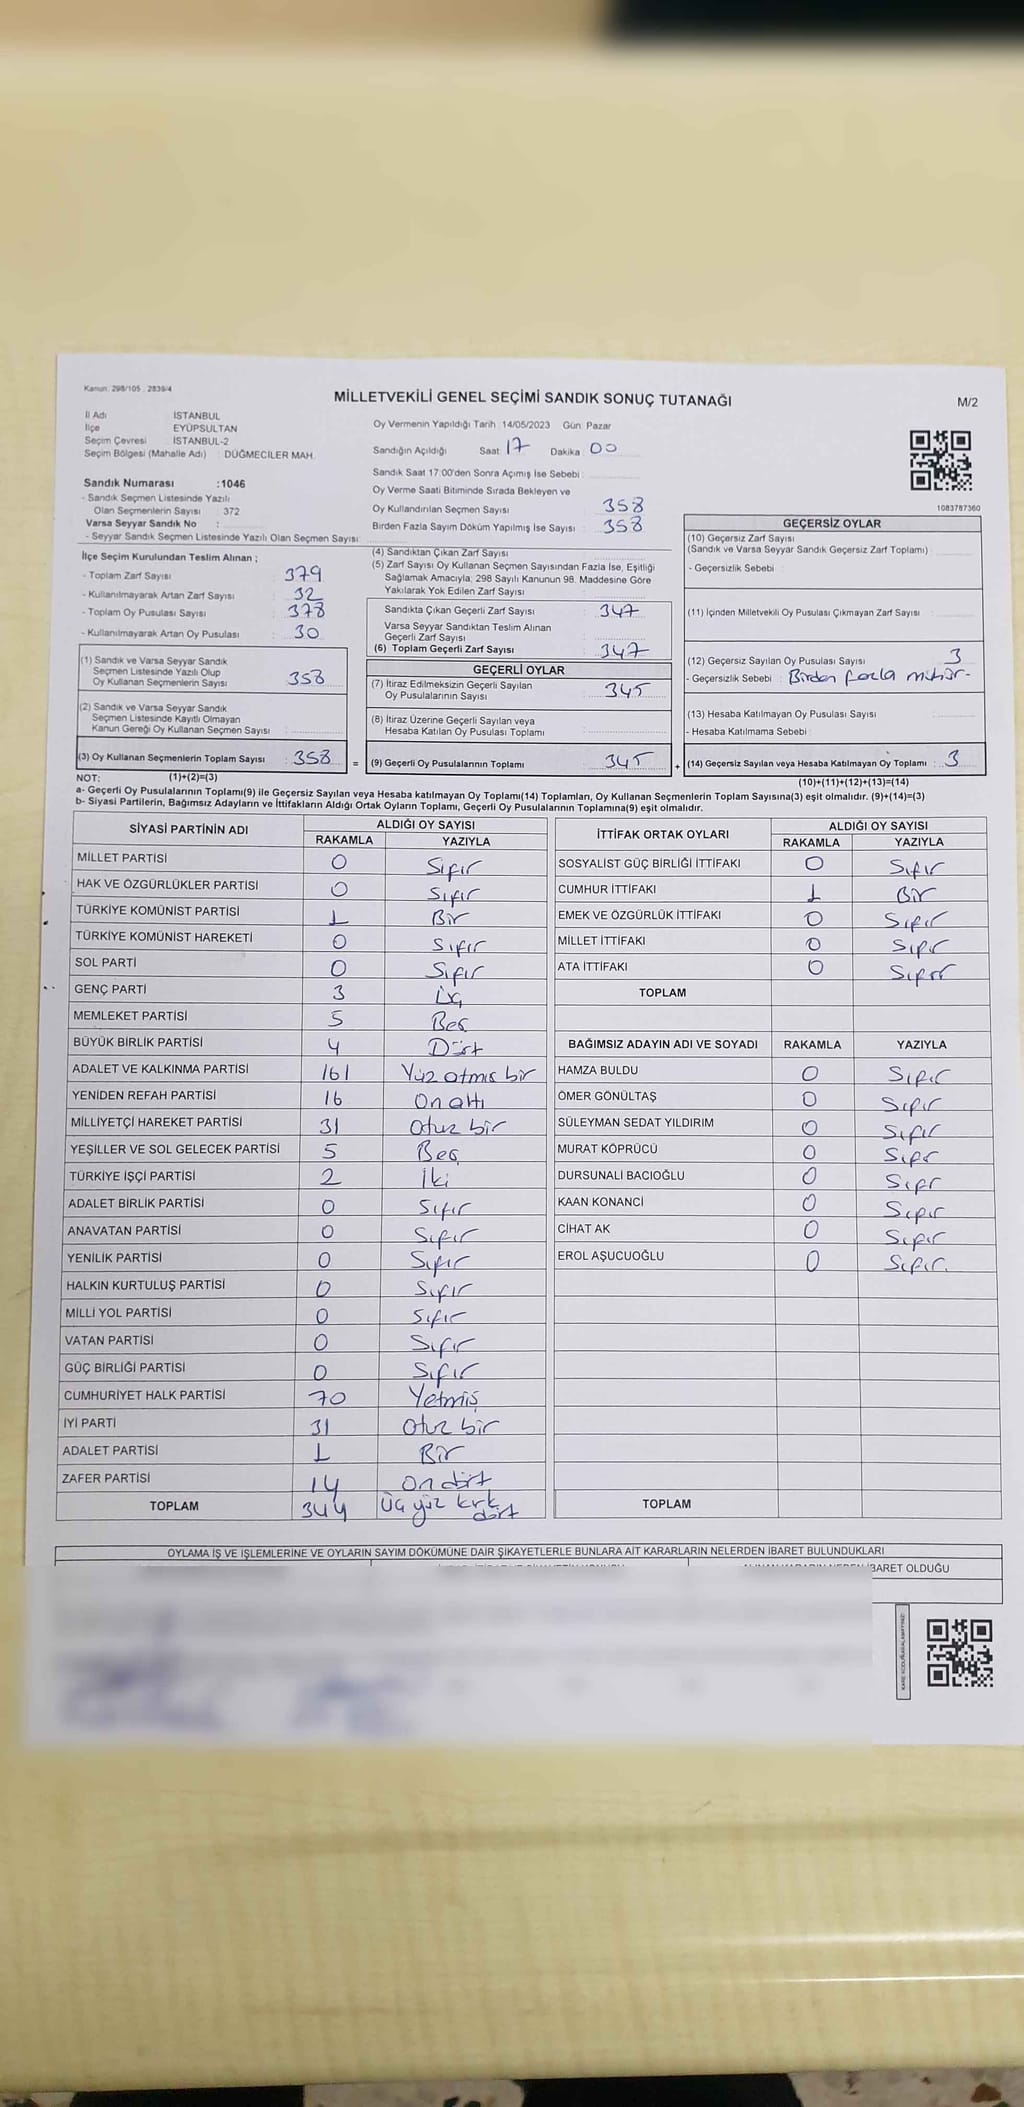 Kanun: 298/105 2839/4
MİLLETVEKİLİ GENEL SEÇİMİ SANDIK SONUÇ TUTANAĞI
M/2
İl Adı İSTANBUL
İlçe EYÜPSULTAN
Seçim Çevresi İSTANBUL-2
Seçim Bölgesi (Mahalle Adı) : DÜĞMECİLER MAH.
Sandık Numarası :1046
- Sandık Seçmen Listesinde Yazılı
Olan Seçmenlerin Sayısı : 372
Varsa Seyyar Sandık No :
- Seyyar Sandık Seçmen Listesinde Yazılı Olan Seçmen Sayısı:
Oy Vermenin Yapıldığı Tarih : 14/05/2023 Gün: Pazar
Sandığın Açıldığı Saat: 17 Dakika: 00
Sandık Saat 17:00'den Sonra Açımış İse Sebebi :
Oy Verme Saati Bitiminde Sırada Bekleyen ve
Oy Kullandırılan Seçmen Sayısı : 358
Birden Fazla Sayım Döküm Yapılmış İse Sayısı : 358
1083787360
İlçe Seçim Kurulundan Teslim Alınan ;
- Toplam Zarf Sayısı : 379
- Kullanılmayarak Artan Zarf Sayısı : 32
- Toplam Oy Pusulası Sayısı : 378
- Kullanılmayarak Artan Oy Pusulası : 30
(1) Sandık ve Varsa Seyyar Sandık
Seçmen Listesinde Yazılı Olup
Oy Kullanan Seçmenlerin Sayısı : 358
(2) Sandık ve Varsa Seyyar Sandık
Seçmen Listesinde Kayıtlı Olmayan
Kanun Gereği Oy Kullanan Seçmen Sayısı :
(3) Oy Kullanan Seçmenlerin Toplam Sayısı : 358
=
(4) Sandıktan Çıkan Zarf Sayısı :
(5) Zarf Sayısı Oy Kullanan Seçmen Sayısından Fazla İse, Eşitliği
Sağlamak Amacıyla; 298 Sayılı Kanunun 98. Maddesine Göre
Yakılarak Yok Edilen Zarf Sayısı :
Sandıkta Çıkan Geçerli Zarf Sayısı : 347
Varsa Seyyar Sandıktan Teslim Alınan
Geçerli Zarf Sayısı :
(6) Toplam Geçerli Zarf Sayısı : 347
GEÇERLİ OYLAR
(7) İtiraz Edilmeksizin Geçerli Sayılan
Oy Pusulalarının Sayısı : 345
(8) İtiraz Üzerine Geçerli Sayılan veya
Hesaba Katılan Oy Pusulası Toplamı :
(9) Geçerli Oy Pusulalarının Toplamı : 345
+
GEÇERSİZ OYLAR
(10) Geçersiz Zarf Sayısı
(Sandık ve Varsa Seyyar Sandık Geçersiz Zarf Toplamı) :
- Geçersizlik Sebebi :
(11) İçinden Milletvekili Oy Pusulası Çıkmayan Zarf Sayısı :
(12) Geçersiz Sayılan Oy Pusulası Sayısı : 3
- Geçersizlik Sebebi : Birden fazla mühür-
(13) Hesaba Katılmayan Oy Pusulası Sayısı :
- Hesaba Katılmama Sebebi :
(14) Geçersiz Sayılan veya Hesaba Katılmayan Oy Toplamı : 3
NOT: (1)+(2)=(3)
(10)+(11)+(12)+(13)=(14)
a- Geçerli Oy Pusulalarının Toplamı(9) ile Geçersiz Sayılan veya Hesaba katılmayan Oy Toplamı(14) Toplamları, Oy Kullanan Seçmenlerin Toplam Sayısına(3) eşit olmalıdır. (9)+(14)=(3)
b- Siyasi Partilerin, Bağımsız Adayların ve İttifakların Aldığı Ortak Oyların Toplamı, Geçerli Oy Pusulalarının Toplamına(9) eşit olmalıdır.
SİYASİ PARTİNİN ADI ALDIĞI OY SAYISI
RAKAMLA YAZIYLA
MİLLET PARTİSİ 0 Sıfır
HAK VE ÖZGÜRLÜKLER PARTİSİ 0 Sıfır
TÜRKİYE KOMÜNİST PARTİSİ 1 Bir
TÜRKİYE KOMÜNİST HAREKETİ 0 Sıfır
SOL PARTİ 0 Sıfır
GENÇ PARTİ 3 Üç
MEMLEKET PARTİSİ 5 Beş
BÜYÜK BİRLİK PARTİSİ 4 Dört
ADALET VE KALKINMA PARTİSİ 161 Yüz atmış bir
YENİDEN REFAH PARTİSİ 16 On altı
MİLLİYETÇİ HAREKET PARTİSİ 31 Otuz bir
YEŞİLLER VE SOL GELECEK PARTİSİ 5 Beş
TÜRKİYE İŞÇİ PARTİSİ 2 İki
ADALET BİRLİK PARTİSİ 0 Sıfır
ANAVATAN PARTİSİ 0 Sıfır
YENİLİK PARTİSİ 0 Sıfır
HALKIN KURTULUŞ PARTİSİ 0 Sıfır
MİLLİ YOL PARTİSİ 0 Sıfır
VATAN PARTİSİ 0 Sıfır
GÜÇ BİRLİĞİ PARTİSİ 0 Sıfır
CUMHURİYET HALK PARTİSİ 70 Yetmiş
İYİ PARTİ 31 Otuz bir
ADALET PARTİSİ 1 Bir
ZAFER PARTİSİ 14 On dört
TOPLAM 344 Üç yüz kırk dört
İTTİFAK ORTAK OYLARI ALDIĞI OY SAYISI
RAKAMLA YAZIYLA
SOSYALİST GÜÇ BİRLİĞİ İTTİFAKI 0 Sıfır
CUMHUR İTTİFAKI 1 Bir
EMEK VE ÖZGÜRLÜK İTTİFAKI 0 Sıfır
MİLLET İTTİFAKI 0 Sıfır
ATA İTTİFAKI 0 Sıfır
TOPLAM
BAĞIMSIZ ADAYIN ADI VE SOYADI RAKAMLA YAZIYLA
HAMZA BULDU 0 Sıfır
ÖMER GÖNÜLTAŞ 0 Sıfır
SÜLEYMAN SEDAT YILDIRIM 0 Sıfır
MURAT KÖPRÜCÜ 0 Sıfır
DURSUNALİ BACIOĞLU 0 Sıfır
KAAN KONANCİ 0 Sıfır
CİHAT AK 0 Sıfır
EROL AŞUCUOĞLU 0 Sıfır.
TOPLAM
OYLAMA İŞ VE İŞLEMLERİNE VE OYLARIN SAYIM DÖKÜMÜNE DAİR ŞİKAYETLERLE BUNLARA AİT KARARLARIN NELERDEN İBARET BULUNDUKLARI
İBARET OLDUĞU